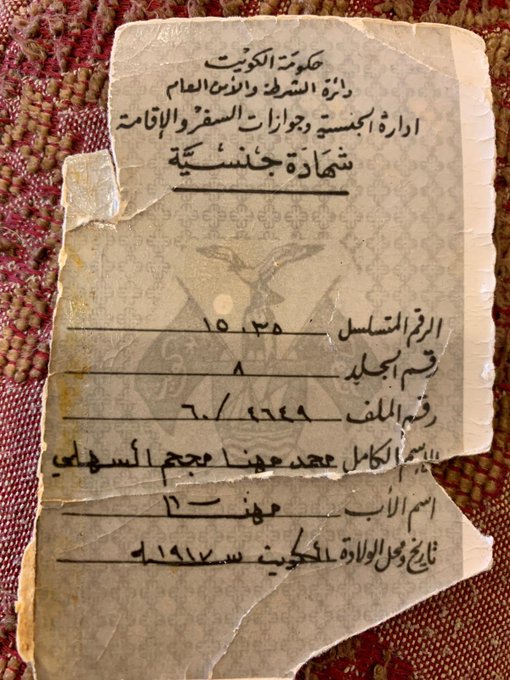 حكومة الكويت
دائرة الشرطة والأمن العام
ادارة الجنسية وجوازات السفر والإقامة
شهادة جنسيّة
الرقم المتسلسل ١٥٠٣٥
رقم الجلد ٨
رقم الملف ٤٦٤٩/٦٠
الإسم الكامل محمد مهنا مجحم السهلي
اسم الأب مهنا
تاريخ ومحل الولادة الكويت سنه ١٩١٧